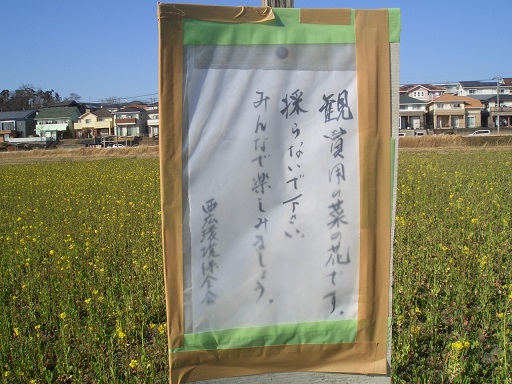 観賞用の菜の花です。
採らないで下さい。
みんなで楽しみましょう。
西広環境保全会